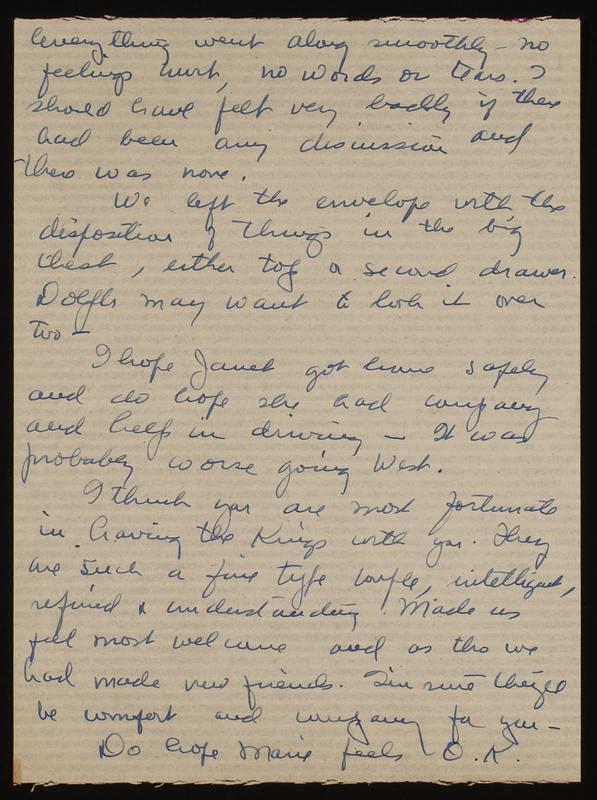 everything went along smoothly - no
feelings hurt, no words or tears. I
should have felt very badly if there
had been any discussion and
there was none.
We left the envelope with the
disposition of things in the big
chest, either top or second drawer.
Dolph may want to look it over
too -
I hope Janet got home safely
and do hope she had company
and help in driving - It was
probably worse going West.
I think you are most fortunate
in having the Kings with you. They
are such a fine type couple, intelligent,
refined & understanding. Made us
feel most welcome and as tho we
had made new friends. I'm sure they'll
be comfort and company for you -
Do hope Marie feels O.K.